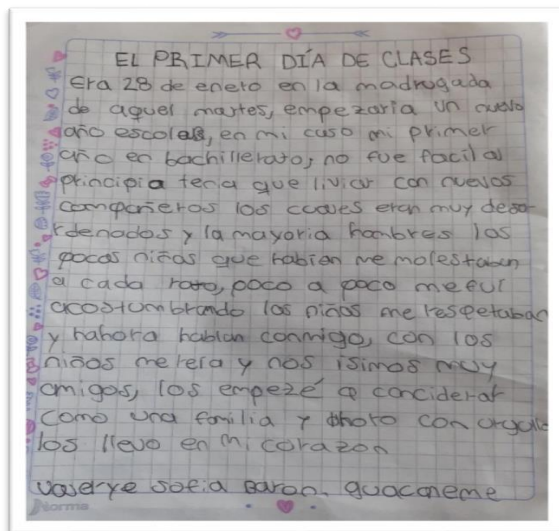 EL PRIMER DÍA DE CLASES
Era 28 de enero en la madrugada
de aquel martes, empezaria un nuevo
año escolar, en mi caso mi primer
año en bachillerato, no fue facil al
principio tenia que liviar con nuevos
compañeros los cuales eran muy desor
rdenados y la mayoria hombres los
pocas niñas que habian me molestaban
a cada rato, poco a poco me fui
acostumbrando los niños me respetaban
y hahora hablan conmigo, con los
niños me reia y nos isimos muy
amigos, los empezé a conciderar
como una familia y ahora con orgullo
los llevo en mi corazon
sofia Baron. guacaneme
norma